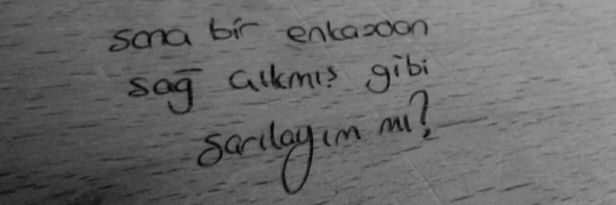 sana bir enkazdan
sağ çıkmış gibi
sarılayım mı?